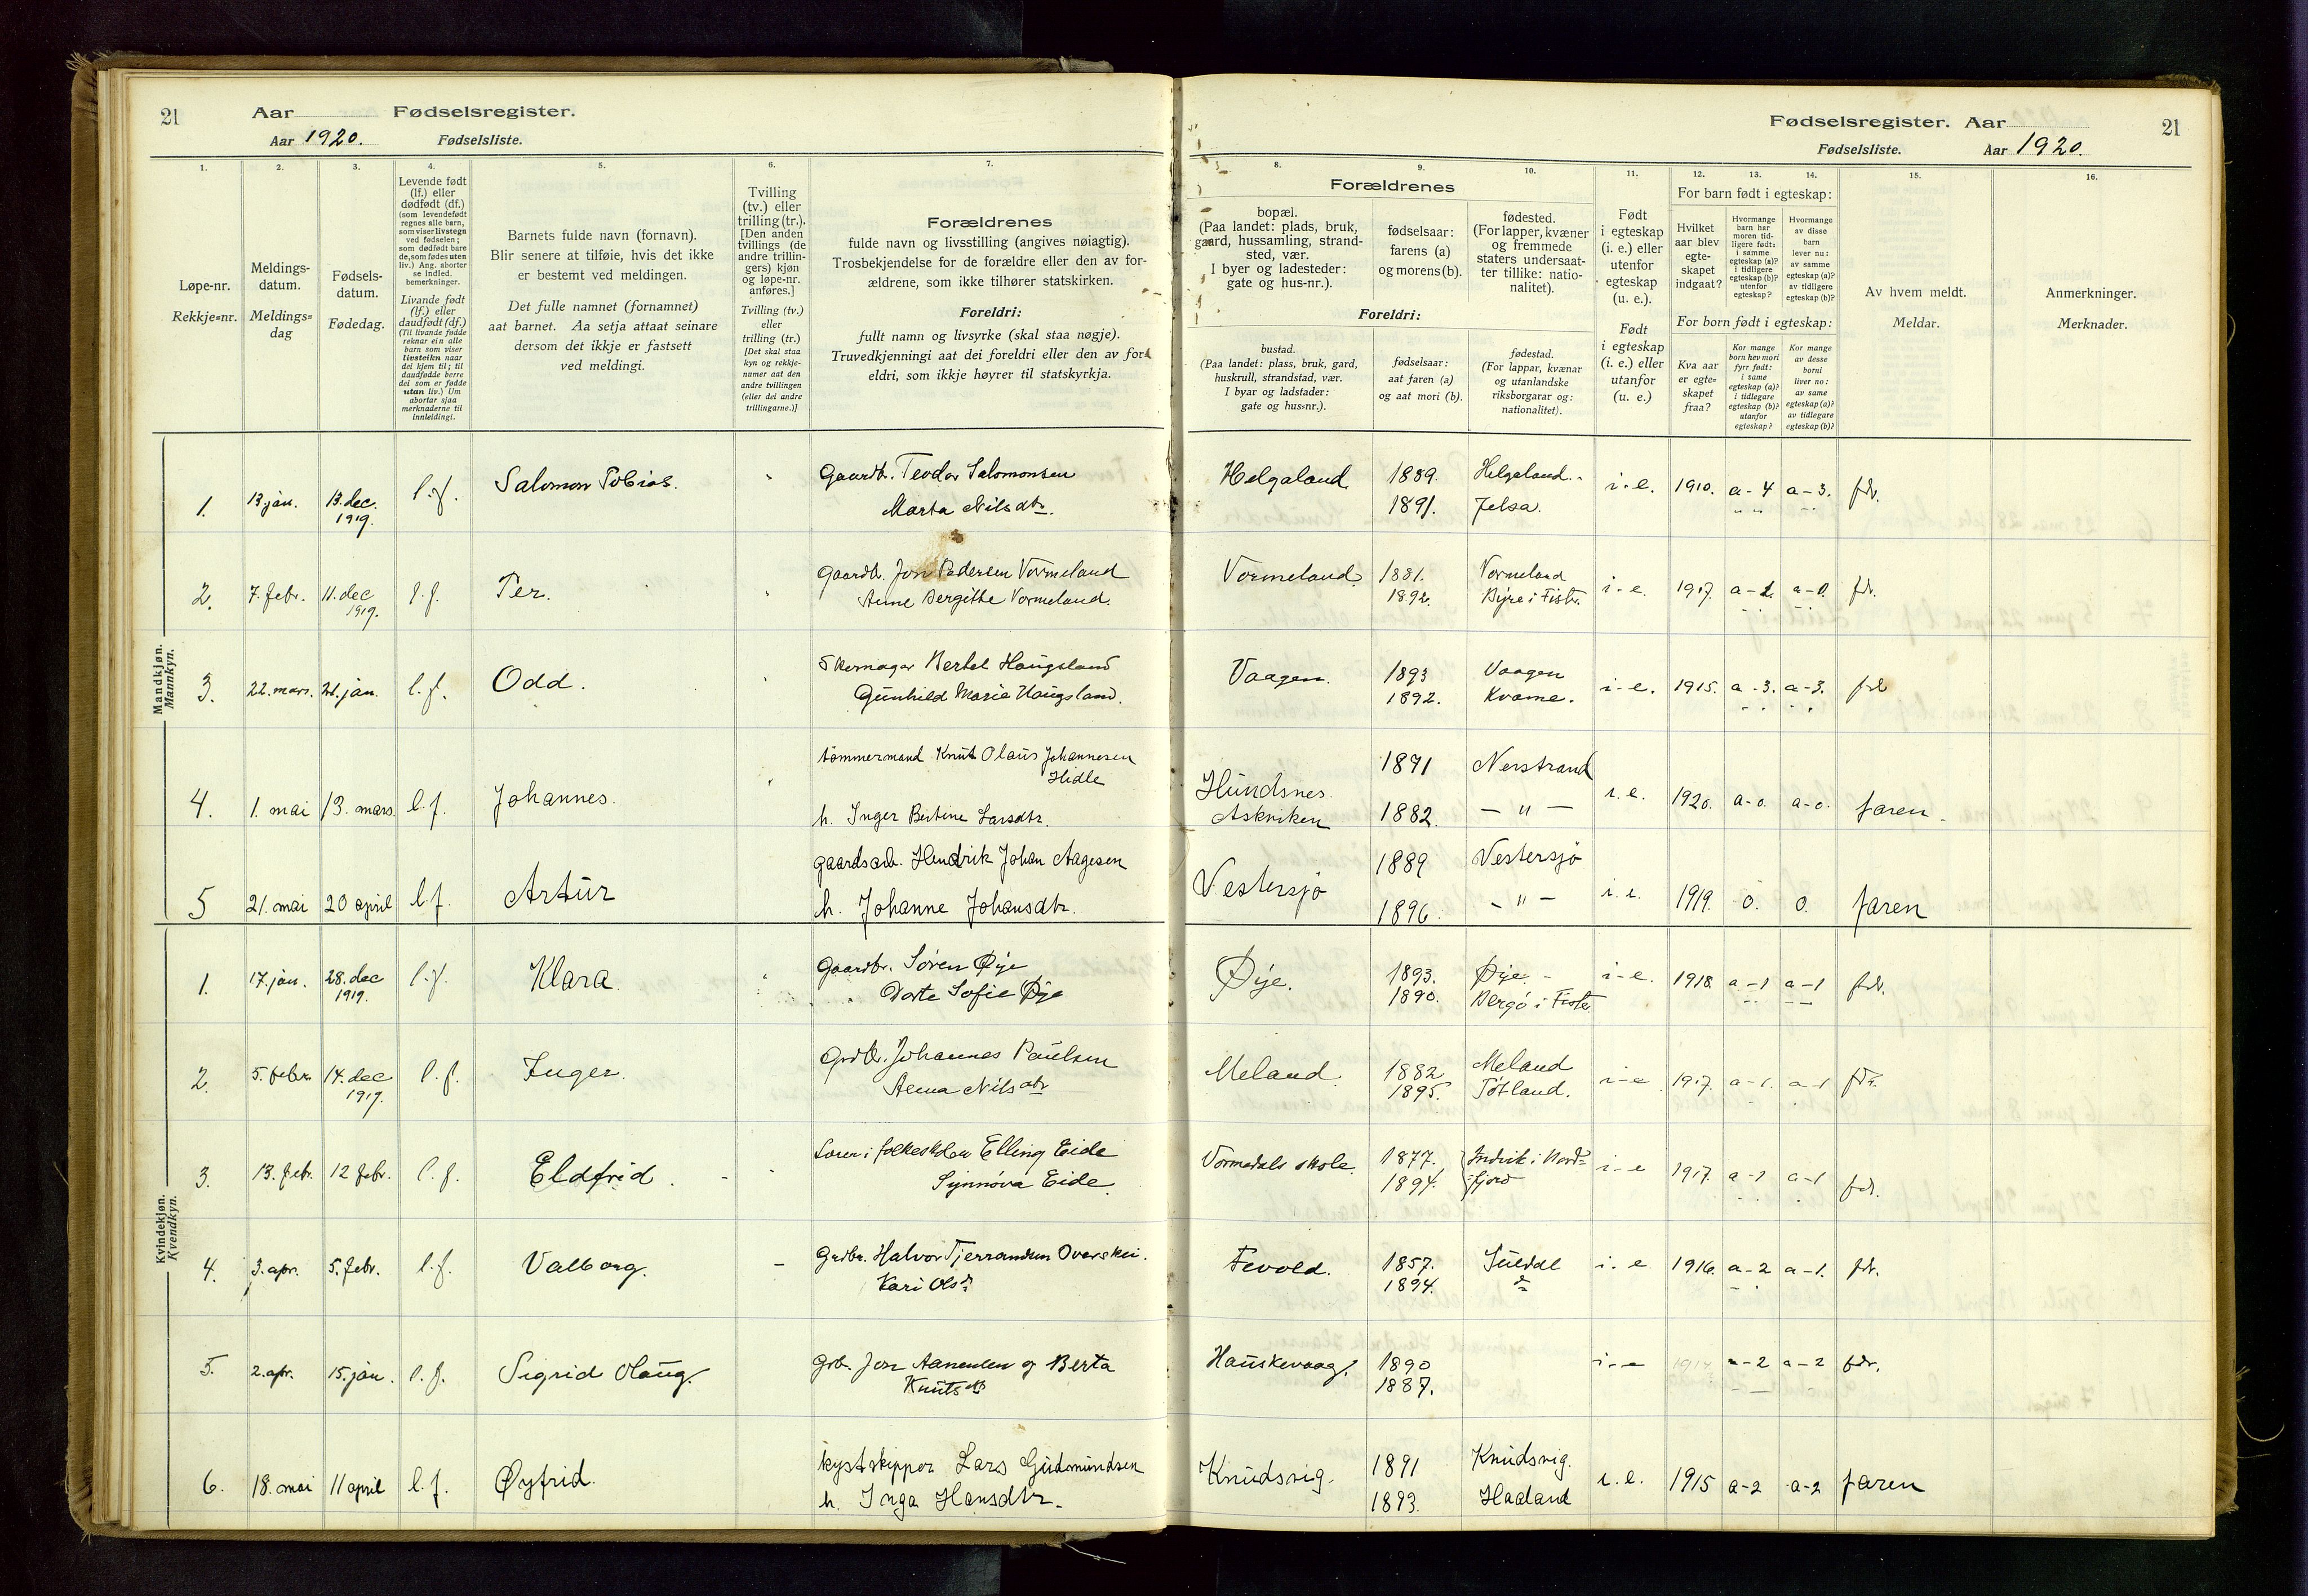 21
Aar Fødselsregister.
Aar 1920. Fødselsliste.
1. 2. 3. 4. 5. 6. 7.
Løpe-nr.
Rekkje=nr.
Meldings-
datum.
Meldings=
dag
Fødsels-
datum.
Fødedag.
Levende født
(lf.) eller
dødfødt (df.)
(som levendefødt
regnes alle barn,
som viser livstegn
ved fødselen;
som dødfødt bare
de, som fødes uten
liv.) Ang. aborter
se indled.
bemerkninger.
Livande født
(lf.) eller
daudfødt (df.)
(Til livande fødde
reknar ein alle
barn som viser
livsteikn naar
dei kjem til; til
daudfødde berre
dei som er fødde
utan liv.) Um
abortar sjaa
merknaderne til
innleidingi.
Barnets fulde navn (fornavn).
Blir senere at tilføie, hvis det ikke
er bestemt ved meldingen.
Det fulle namnet (fornamnet)
aat barnet. Aa setja attaat seinare
dersom det ikkje er fastsett
ved meldingi.
Tvilling
(tv.) eller
trilling (tr.).
[Den anden
tvillings (de
andre trillin-
gers) kjøn
og løpe-nr.
anføres.]
Tvilling (tv.)
eller
trilling (tr.)
[Det skal staa
kyn og rekkje-
numer aat den
andre tvillingen
(eller dei andre
trillingarne.)]
Forældrenes
fulde navn og livsstilling (angives nøiagtig).
Trosbekjendelse for de forældre eller den av for-
ældrene, som ikke tilhører statskirken.
Foreldri:
fullt namn og livsyrke (skal staa nøgje).
Truvedkjenningi aat dei foreldri eller den av for
eldri, som ikkje høyrer til statskyrkja.
Mandkjøn.
Mannkyn.
1. 13 jan. 13. dec. 1919. l.f. Salomon Tobias. Gaardbr. Teodor Salomonsen
Marta Nilsdtr.
2. 7. febr. 11. dec 1919. l.f. Per. Gaardbr. Jon Pedersen Vormeland
Anne Bergitte Vormeland.
3. 22. mars. 21. jan. l.f. Odd. Skomager Bertel Haugsland
Gunhild Marie Haugsland.
4. 1. mai 13. mars. l.f. Johannes. tømmermand Knut Olaus Johannesen
Hidle
h. Inger Bertine Larsdtr.
5 21. mai 20 april l.f. Artur gaardsarb. Hendrik Johan Aagesen
h. Johanne Johansdtr.
Kvindekjøn.
Kvendkyn.
1. 17. jan. 28. dec 1919. l.f. Klara. Gaardbr. Søren Øye
Dorte Sofie Øye
2. 5. febr. 14. dec 1919. l.f. Inger. Grdbr. Johannes Paulsen
Anna Nilsdtr
3. 13. febr. 12 febr. l.f. Eldfrid. Lærer i folkeskolen Elling Eide
Synnøva Eide.
4. 3. apr. 5. febr. l.f. Valborg. Grdbr. Halvor Tjerrandsen Overskei.
Kari Olsd
5. 2. apr. 15. jan. l.f. Sigrid Olaug. Grb. Jon Aanensen og Berta
Knutsdtr
6. 18. mai 11 april l.f. Øyfrid. kystskipper Lars Gudmundsen
h. Inga Hansdtr.
Fødselsregister. Aar 21
Fødselsliste. Aar 1920.
8. 9. 10. 11. 12. 13. 14. 15. 16.
Forældrenes
bopæl.
(Paa landet: plads, bruk,
gaard, hussamling, strand-
sted, vær.
I byer og ladesteder:
gate og hus-nr.).
fødselsaar:
farens (a)
og morens (b).
fødested.
(For lapper, kvæner
og fremmede
staters undersaat-
ter tillike: natio-
nalitet).
Foreldri:
bustad.
(Paa landet: plass, bruk, gard,
huskrull, strandstad, vær.
I byar og ladstader:
gate og hus=nr.).
fødselsaar:
aat faren (a)
og aat mori (b).
fødestad.
(For lappar, kvænar
og utanlandske
riksborgarar og:
nationalitet).
Født
i egteskap
(i. e.) eller
utenfor
egteskap
(u. e.).
Født
i egteskap
(i. e.) eller
utanfor
(u. e.)
For barn født i egteskap:
Hvilket
aar blev
egte-
skapet
indgaat?
Hvormange
barn har
moren tid-
ligere født:
i samme
egteskap (a)?
i tidligere
egteskap (b)?
utenfor
egteskap?
Hvormange
av disse
barn
lever nu:
av samme
egteskap (a)?
av tidligere
egteskap (b)?
For born født i egteskap:
Kva aar
er egte=
skapet
fraa?
Kor mange
born hev mori
fyrr født:
i same
egteskap (a)?
i tidlegare
egteskap (b)?
utanfor
egteskap?
Kor mange
av desse
borni
liver no:
av same
egteskap (a)?
av tidlegare
egteskap (b)?
Av hvem meldt.
Meldar.
Anmerkninger.
Merknader.
Helgaland 1889. Helgaland. i-e. 1910. a-4 a-3. fdr.
1891. Jelsa.
Vormeland. 1881. Vormeland i-e. 1917. a-1. a-0. fdr.
1892. Byre i Fister.
Vaagen. 1893 Vaagen i-e. 1915. a-3. a-3. fdr
1892. Kvame.
Hundsnes. 1871 Nerstrand i.e. 1920. a-0. a-0. faren.
Askviken 1882. — " —
Vestersjø 1889 Vestersjø i.e. 1919. 0. 0. faren
1896. - " -
Øye. 1893. Øye. i-e. 1918. a-1 a-1 fdr.
1890. Bergø i Fister
Meland. 1882 Meland i-e 1917. a-1. a-1 fdr.
1895. Tøtland.
Vormedals skole. 1877. Indvik i Nord- i-e 1917. a-1 a-1 fdr.
1894. fjord
Fevold. 1857. Suldal i.e 1916. a-2 a-1. fdr.
1894.
Hauskevaag. 1890 i-e a-2 a-2 fdr.
1887.
Knudsvig. 1891 Knudsvig. i.e. 1915 a-2 a-2 faren
1893. Haaland